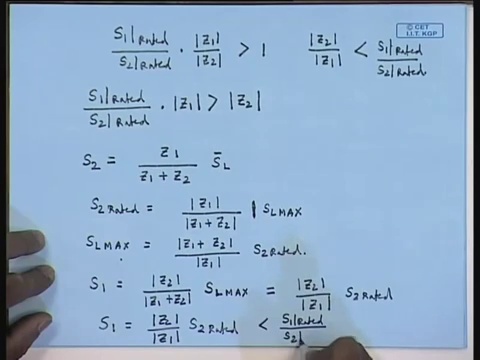 © CET
I.I.T. KGP
S1|Rated / S2|Rated · |Z1| / |Z2| > 1    |Z2| / |Z1| < S1|Rated / S2|Rated
S1|Rated / S2|Rated · |Z1| > |Z2|
S2 = Z1 / Z1 + Z2 S̄L
S2 Rated = |Z1| / |Z1 + Z2| | SLMAX
SLMAX = |Z1 + Z2| / |Z1| S2 Rated.
S1 = |Z2| / |Z1 + Z2| SLMAX = |Z2| / |Z1| S2 Rated
S1 = |Z2| / |Z1| S2 Rated < S1|Rated / S2|